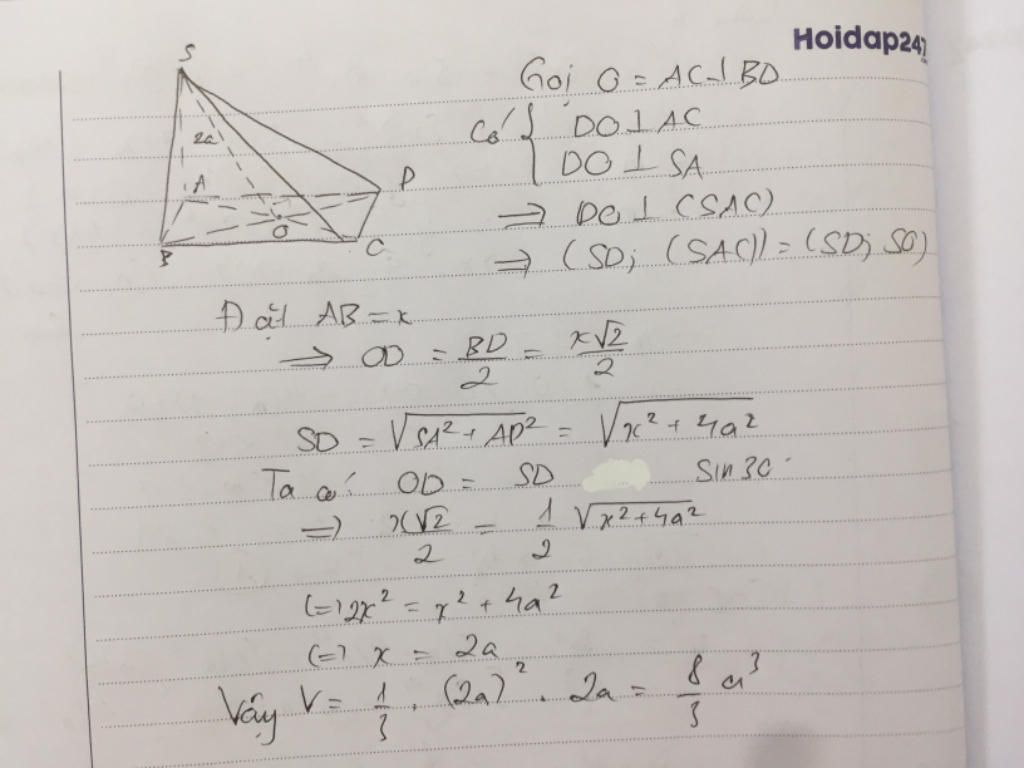 Hoidap247
S
2a
A
D
O
B
C
Gọi O = AC ⊥ BD
Có { DO ⊥ AC
DO ⊥ SA
=> DO ⊥ (SAC)
=> (SD; (SAC)) = (SD; SO)
Đặt AB = x
=> OD = BD/2 = x√2/2
SD = √(SA² + AD²) = √(x² + 4a²)
Ta có: OD = SD sin 30°
=> x√2/2 = 1/2 √(x² + 4a²)
(=) 2x² = x² + 4a²
(=) x = 2a
Vậy V = 1/3 . (2a)² . 2a = 8/3 a³